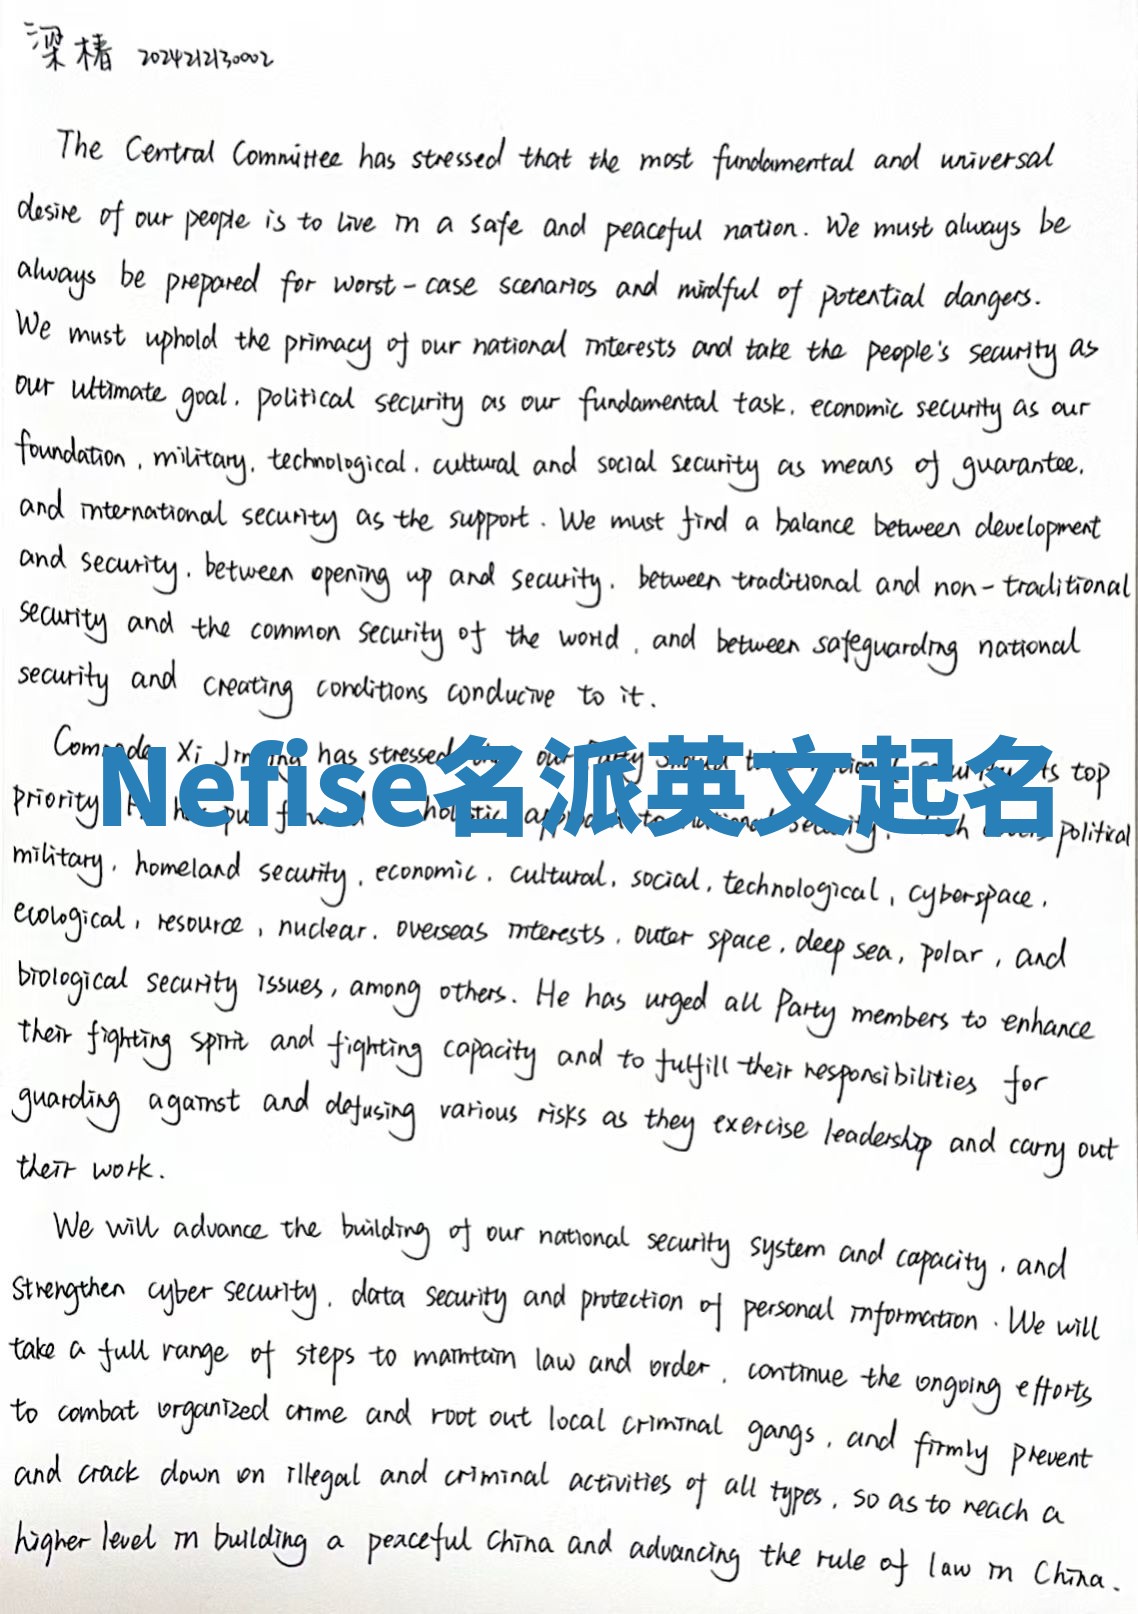 梁椿 2024212130002
The Central Committee has stressed that the most fundamental and universal
desire of our people is to live in a safe and peaceful nation. We must always be
always be prepared for worst-case scenarios and mindful of potential dangers.
We must uphold the primacy of our national interests and take the people's security as
our ultimate goal, political security as our fundamental task, economic security as our
foundation, military, technological, cultural and social security as means of guarantee,
and international security as the support. We must find a balance between development
and security, between opening up and security, between traditional and non-traditional
security and the common security of the world, and between safeguarding national
security and creating conditions conducive to it.
Comrade Xi Jinping has stressed our Party should top
Nefise名派英文起名
priority. put holistic to national security, political
military, homeland security, economic, cultural, social, technological, cyberspace,
ecological, resource, nuclear, overseas interests, outer space, deep sea, polar, and
biological security issues, among others. He has urged all Party members to enhance
their fighting spirit and fighting capacity and to fulfill their responsibilities for
guarding against and defusing various risks as they exercise leadership and carry out
their work.
We will advance the building of our national security system and capacity, and
strengthen cyber security, data security and protection of personal information. We will
take a full range of steps to maintain law and order, continue the ongoing efforts
to combat organized crime and root out local criminal gangs, and firmly prevent
and crack down on illegal and criminal activities of all types, so as to reach a
higher level in building a peaceful China and advancing the rule of law in China.